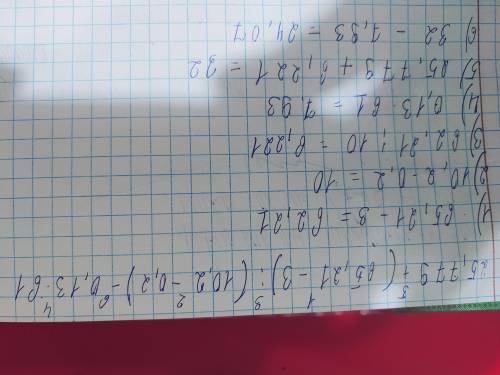 5 1 3 2 6 4
25,779 + (65,21 - 3) : (10,2 - 0,2) - 0,13 · 61
1) 65,21 - 3 = 62,21
2) 10,2 - 0,2 = 10
3) 62,21 : 10 = 6,221
4) 0,13 · 61 = 7,93
5) 25,779 + 6,221 = 32
6) 32 - 7,93 = 24,07